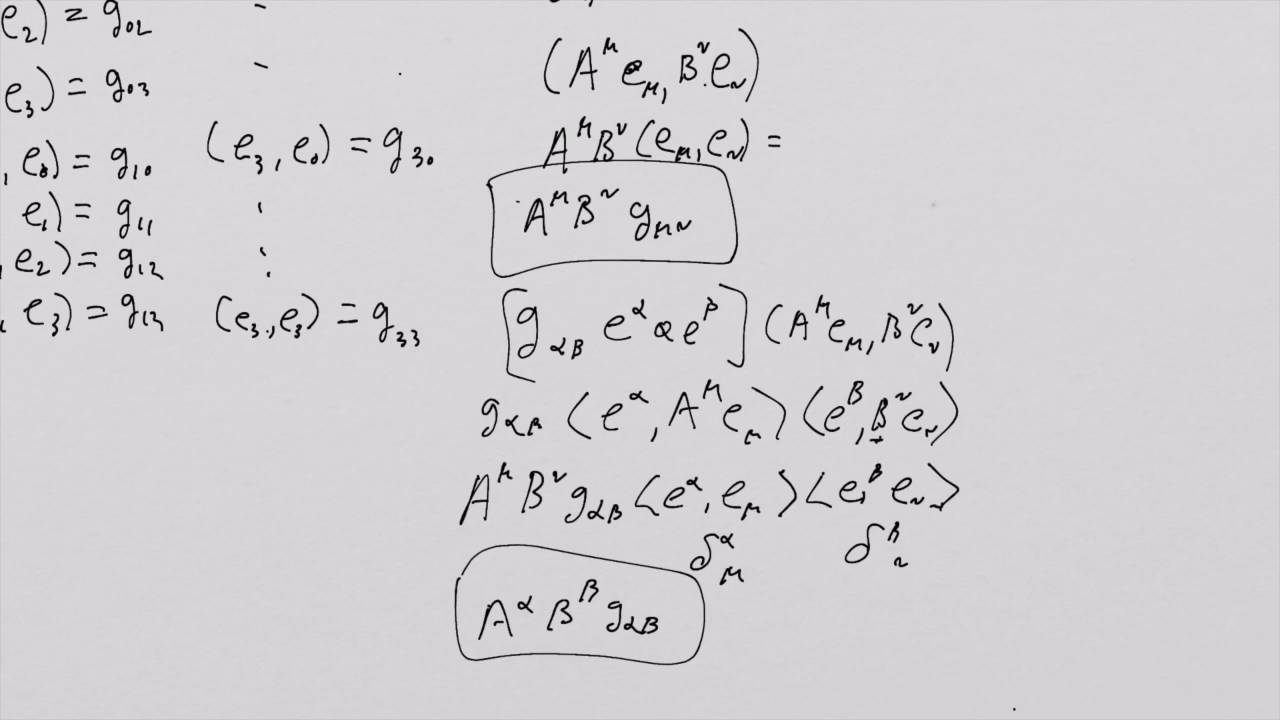 e₂) = g₀₂
e₃) = g₀₃
, e₀) = g₁₀
e₁) = g₁₁
, e₂) = g₁₂
, e₃) = g₁₃
(e₃, e₀) = g₃₀
(e₃, e₃) = g₃₃
(A^μ e_μ, B^ν e_ν)
A^μ B^ν (e_μ, e_ν) =
A^μ B^ν g_μν
[g_αβ e^α ⊗ e^β] (A^μ e_μ, B^ν e_ν)
g_αβ ⟨e^α, A^μ e_μ⟩ ⟨e^β, B^ν e_ν⟩
A^μ B^ν g_αβ ⟨e^α, e_μ⟩ ⟨e^β, e_ν⟩
δ^α_μ δ^β_ν
A^α B^β g_αβ